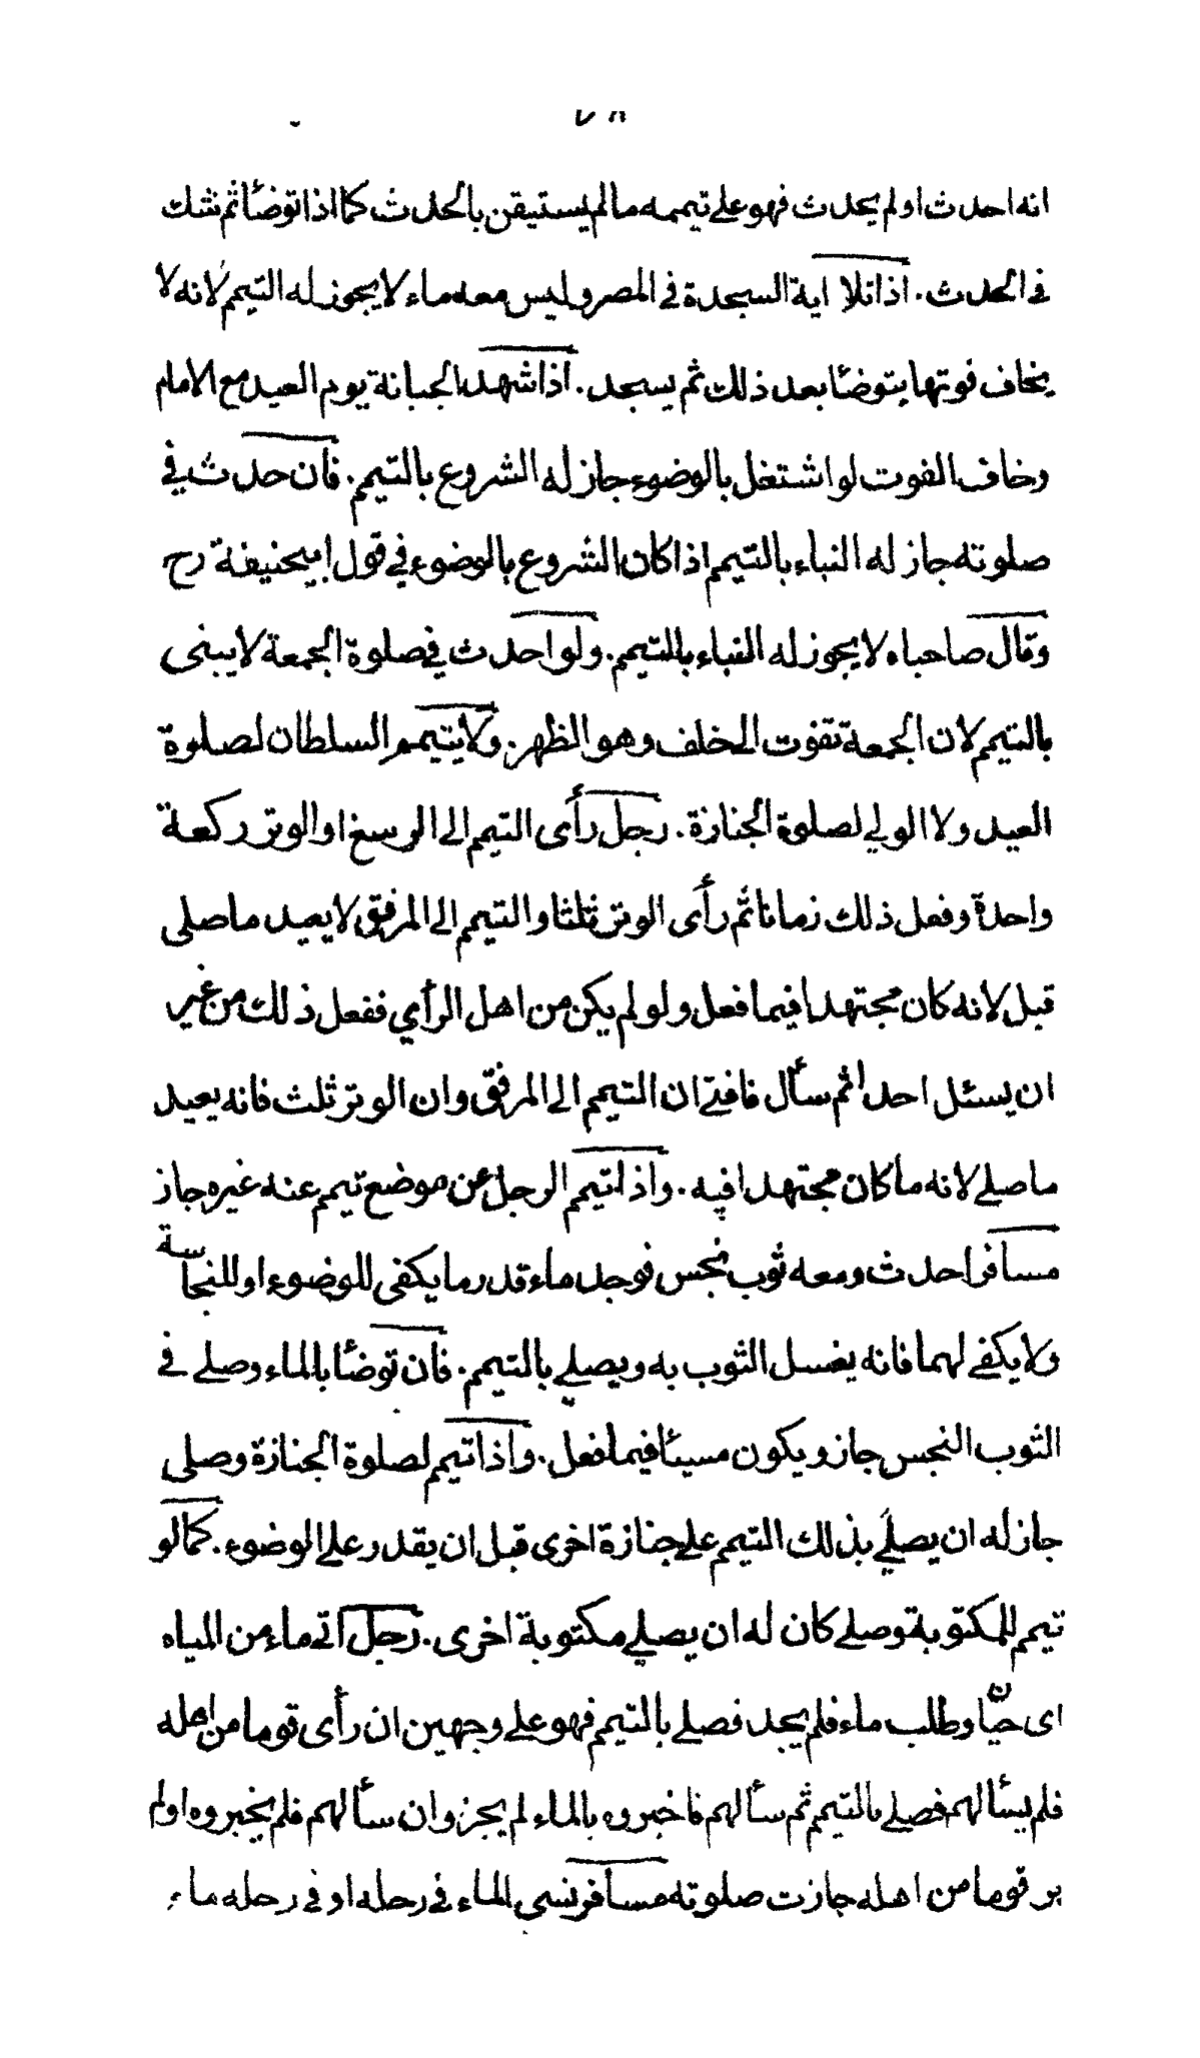 ٧٨
انه احدث اولم يحدث فهو على تيممه مالم يستيقن بالحدث كما اذا توضأ ثم شك
فى الحدث. اذا تلا اية السجدة فى المصر وليس معه ماء لا يجوز له التيمم لانه لا
يخاف فوتها يتوضأ بعد ذلك ثم يسجد. اذا شهد الجبانة يوم العيد مع الامام
وخاف الفوت لو اشتغل بالوضوء جاز له الشروع بالتيمم. فان حدث في
صلوته جاز له النباء بالتيمم اذا كان الشروع بالوضوء في قول ابيحنيفة رح
وقال صاحباه لا يجوز له البناء بالتيمم. ولو احدث في صلوة الجمعة لا يبنى
بالتيمم لان الجمعة تفوت الى خلف وهو الظهر. ولا يتيمم السلطان لصلوة
العيد ولا الولي لصلوة الجنازة. رجل رأى التيمم الى الرسغ او الوتر ركعة
واحدة وفعل ذلك زمانا ثم رأى الوتر ثلثا والتيمم الى المرفق لا يعيد ما صلى
قبل لانه كان مجتهدا فيما فعل ولو لم يكن من اهل الرأي ففعل ذلك من غير
ان يسئل احدا ثم سأل فافتى ان التيمم الى المرفق وان الوتر ثلث فانه يعيد
ما صلے لانه ما كان مجتهدا فيه. واذا تيمم الرجل عن موضع تيمم عنه غيره جاز
مسافر احدث ومعه ثوب نجس فوجد ماء قدر ما يكفى للوضوء او للنجاسة
ولا يكفے لهما فانه يغسل الثوب به ويصلي بالتيمم. فان توضأ بالماء وصلے فى
الثوب النجس جاز ويكون مسيئا فيما فعل. واذا تيمم لصلوة الجنازة وصلى
جاز له ان يصلي بذلك التيمم على جنازة اخرى قبل ان يقدر على الوضوء. كما لو
تيمم للمكتوبة وصلے كان له ان يصلي مكتوبة اخرى. رجل اتى ماء من المياه
اى حيا وطلب ماء فلم يجد فصلے بالتيمم فهو على وجهين ان رأى قوما من اهله
فلم يسألهم فصلے بالتيمم ثم سألهم فاخبروه بالماء لم يجز وان سألهم فلم يخبروه اولم
ير قوما من اهله جازت صلوته مسافر نسى الماء فى رحله او فى رحله ماء